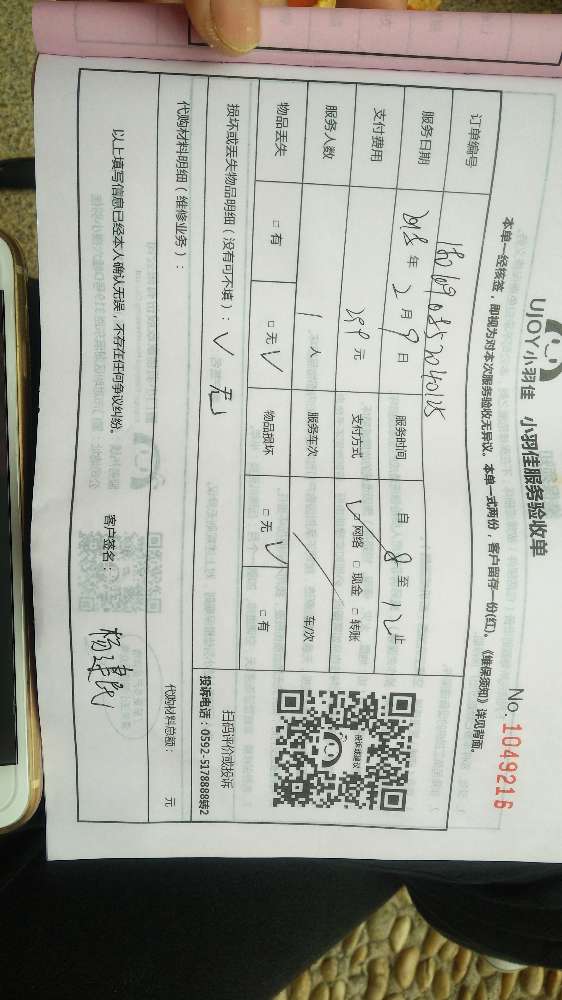 UJOY小羽佳 小羽佳服务验收单 No. 1049216
本单一经核签，即视为对本次服务验收无异议。本单一式两份，客户留存一份(红)。《维保须知》详见背面。
订单编号
服务日期 2018 年 2 月 9 日 服务时间 自 8 至 12 止
支付费用 元 支付方式 ✓ □ 网络 □ 现金 □ 转账
服务人数 1 人 服务车次 车/次
物品丢失 □ 有 □ 无 ✓ 物品损坏 □ 无 ✓ □ 有
损坏或丢失物品明细（没有可不填）： ✓ 无
投诉或建议
扫码评价或投诉
投诉电话：0592-5178888转2
代购材料明细（维修业务）： 代购材料总额： 元
以上填写信息已经本人确认无误，不存在任何争议纠纷。 客户签名： 杨建民